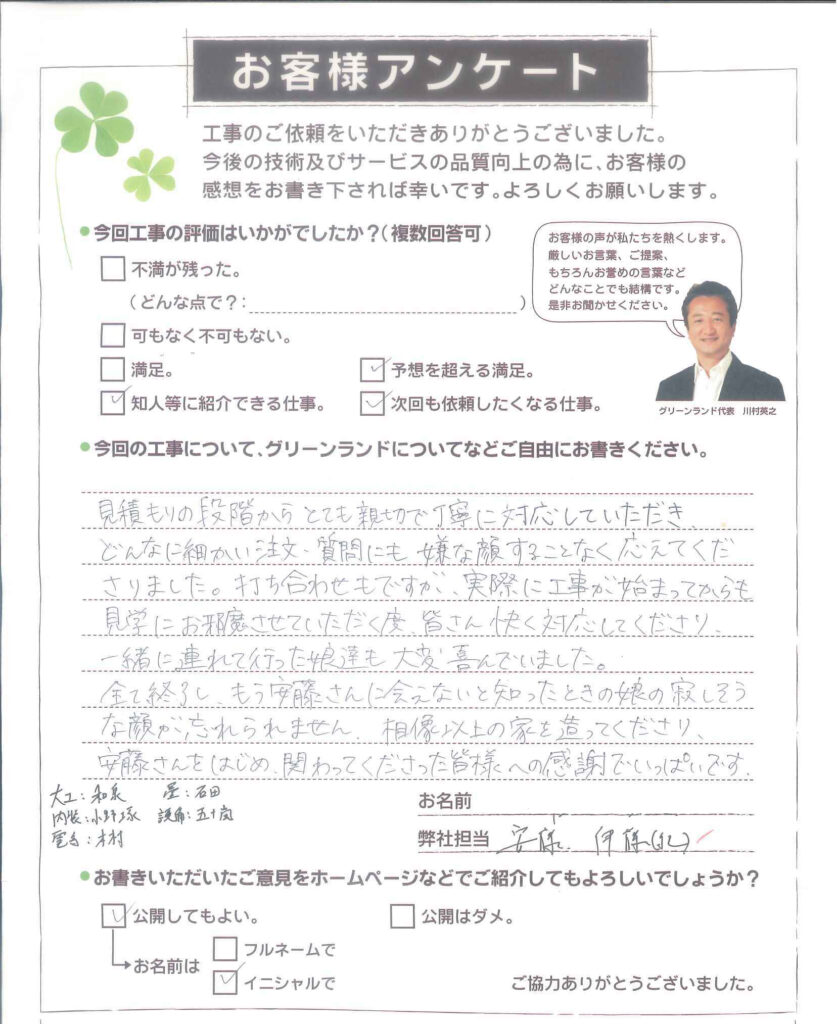 お客様アンケート
工事のご依頼をいただきありがとうございました。
今後の技術及びサービスの品質向上の為に、お客様の
感想をお書き下されば幸いです。よろしくお願いします。
●今回工事の評価はいかがでしたか?(複数回答可)
不満が残った。
(どんな点で?: )
可もなく不可もない。
満足。 予想を超える満足。
知人等に紹介できる仕事。 次回も依頼したくなる仕事。
お客様の声が私たちを熱くします。
厳しいお言葉、ご提案、
もちろんお誉めの言葉など
どんなことでも結構です。
是非お聞かせください。
グリーンランド代表 川村英之
●今回の工事について、グリーンランドについてなどご自由にお書きください。
見積もりの段階からとても親切で丁寧に対応していただき、
どんなに細かい注文・質問にも嫌な顔することなく応えてくだ
さりました。打ち合わせもですが、実際に工事が始まってからも
見学にお邪魔させていただく度、皆さん快く対応してくださり、
一緒に連れて行った娘達も大変喜んでいました。
全て終了し、もう安藤さんに会えないと知ったときの娘の寂しそう
な顔が忘れられません。相像以上の家を造ってくださり、
安藤さんをはじめ、関わってくださった皆様への感謝でいっぱいです。
大工:和泉 石田
内装:小野塚 五十嵐
木村
お名前
弊社担当 安藤、伊藤
●お書きいただいたご意見をホームページなどでご紹介してもよろしいでしょうか?
公開してもよい。 公開はダメ。
お名前は フルネームで
イニシャルで
ご協力ありがとうございました。